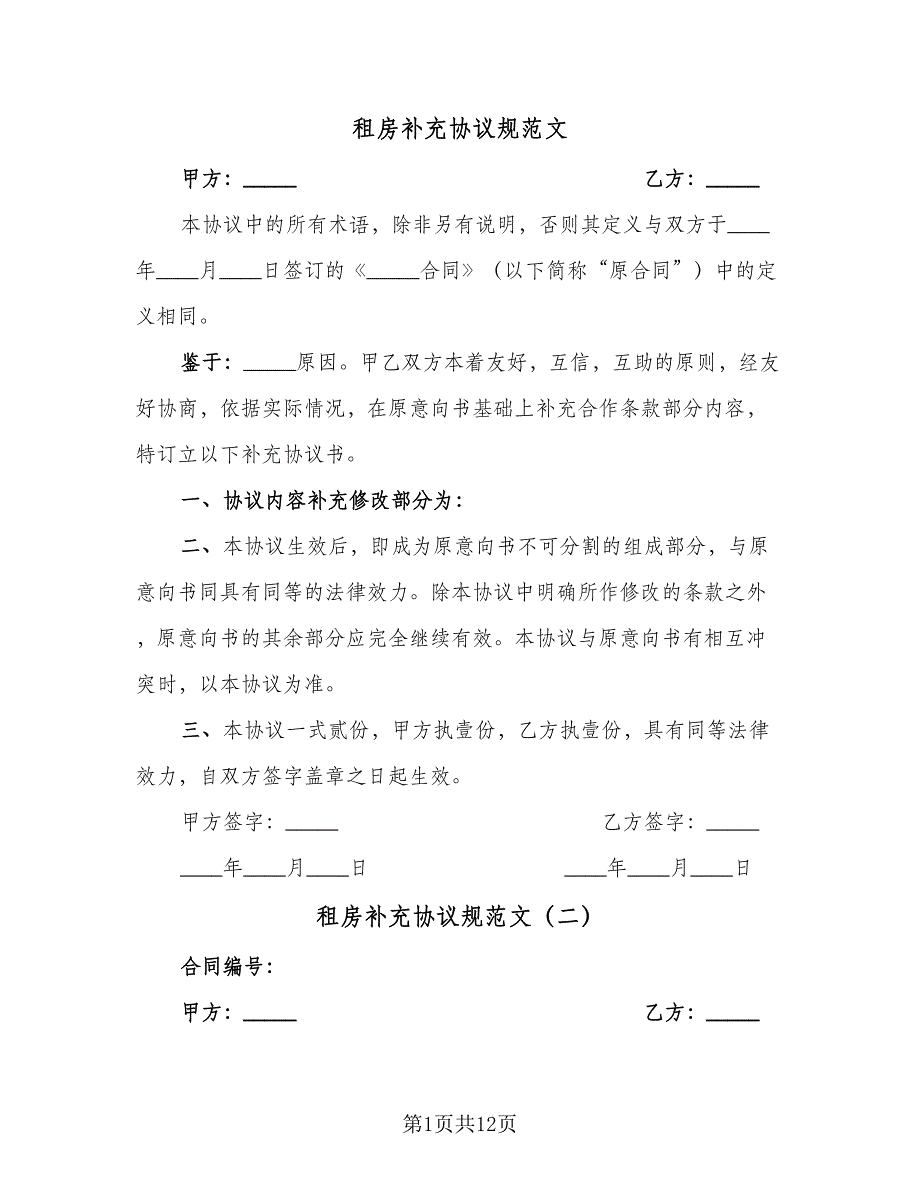 租房补充协议规范文
甲方：_____ 乙方：_____
本协议中的所有术语，除非另有说明，否则其定义与双方于____
年____月____日签订的《_____合同》（以下简称“原合同”）中的定
义相同。
鉴于：_____原因。甲乙双方本着友好，互信，互助的原则，经友
好协商，依据实际情况，在原意向书基础上补充合作条款部分内容，
特订立以下补充协议书。
一、协议内容补充修改部分为：
二、本协议生效后，即成为原意向书不可分割的组成部分，与原
意向书同具有同等的法律效力。除本协议中明确所作修改的条款之外
，原意向书的其余部分应完全继续有效。本协议与原意向书有相互冲
突时，以本协议为准。
三、本协议一式贰份，甲方执壹份，乙方执壹份，具有同等法律
效力，自双方签字盖章之日起生效。
甲方签字：_____ 乙方签字：_____
____年____月____日 ____年____月____日
租房补充协议规范文（二）
合同编号：
甲方：_____ 乙方：_____
第1页共12页